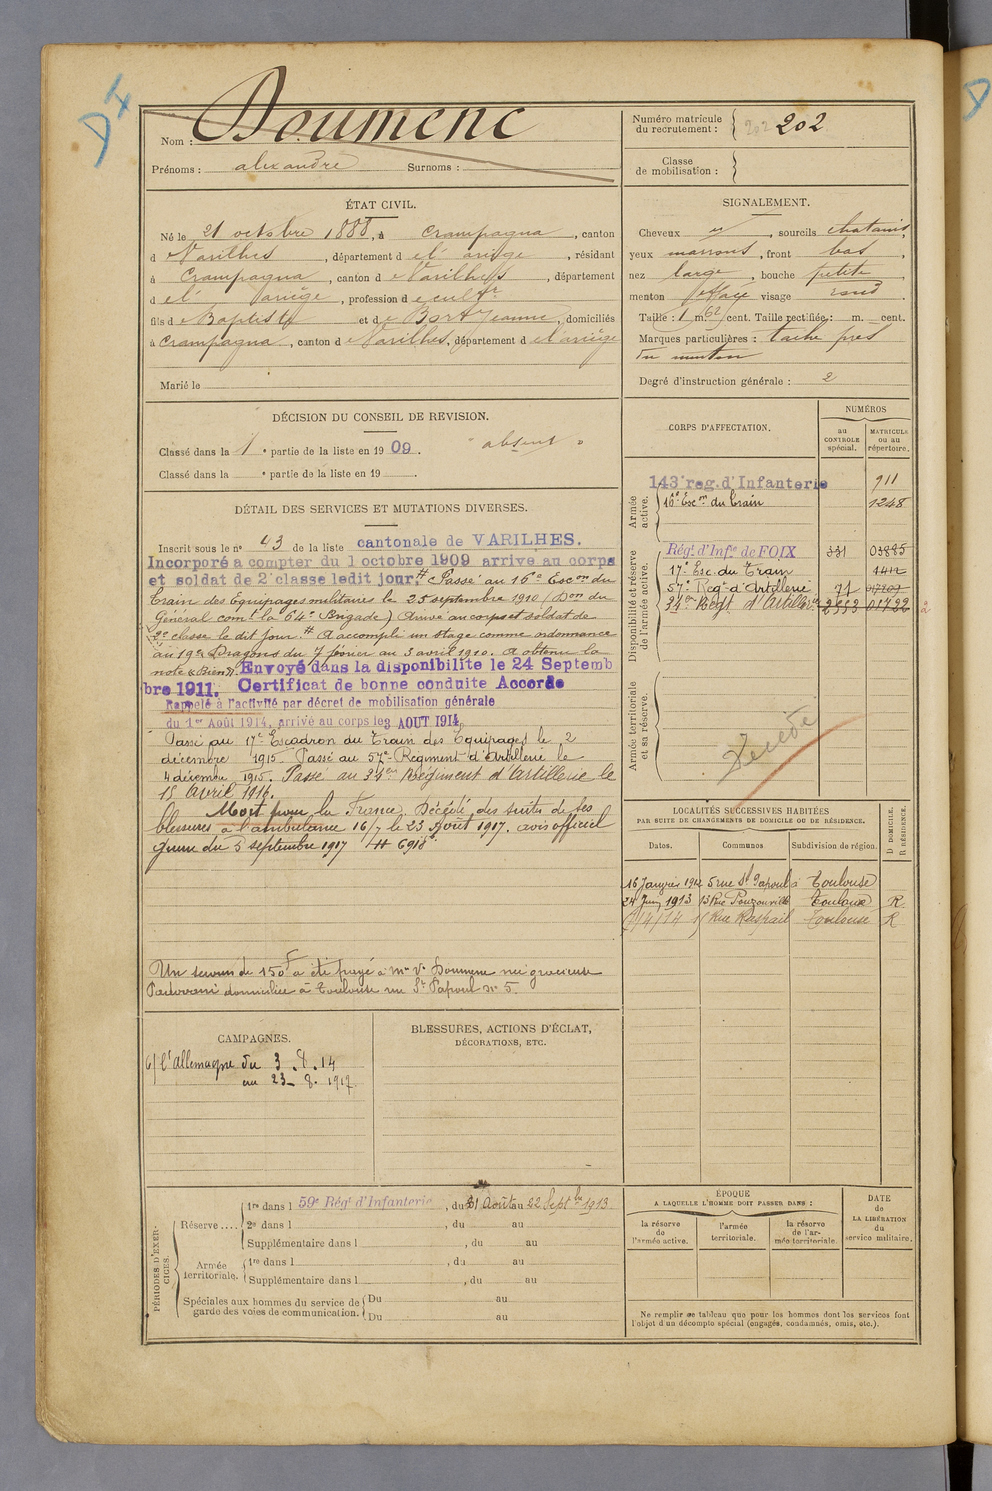 DI
Nom : Doumenc
Prénoms : alexandre Surnoms :
Numéro matricule
du recrutement : 202 202
Classe
de mobilisation :
ÉTAT CIVIL.
Né le 21 octobre 1888, à Crampagna, canton
d e Varilhes, département d el' ariège, résidant
à Crampagna, canton d e Varilhes, département
d el' Dariège, profession d e cultr
fils d e Baptiste et d e Bort Jeanne, domiciliés
à Crampagna, canton d e Varilhes, département d el'ariège
Marié le
SIGNALEMENT.
Cheveux , sourcils chatains,
yeux marrons, front bas,
nez large, bouche petite
menton effacé visage rond.
Taille : 1 m. 62 cent. Taille rectifiée : m. cent.
Marques particulières : tache près
du menton
Degré d'instruction générale : 2
DÉCISION DU CONSEIL DE REVISION.
Classé dans la 1 e partie de la liste en 1909. "absent"
Classé dans la e partie de la liste en 19 .
CORPS D'AFFECTATION.
NUMÉROS
au
CONTROLE
spécial.
MATRICULE
ou au
répertoire.
Armée
active.
143e reg. d'Infanterie 911
16e Escon du Train 1248
Disponibilité et réserve
de l'armée active.
Régt d'Infie de FOIX 331 03885
17e Esc. du Train 1412
57e Régt d'Artillerie 71
34e Régt d'Artillerie 2553 01792 2
Armée territoriale
et sa réserve.
Décédé
DÉTAIL DES SERVICES ET MUTATIONS DIVERSES.
Inscrit sous le no 43 de la liste cantonale de VARILHES.
Incorporé à compter du 1 octobre 1909 arrivé au corps
et soldat de 2e classe ledit jour. # Passé au 16e Escon du
Train des Equipages militaires le 25 septembre 1910 (Don du
Général comt la 64e Brigade) Arrivé au corps et soldat de
2e classe le dit jour. # A accompli un stage comme ordonnance
au 19e Dragons du 7 février au 3 avril 1910. A obtenu la
note « Bien ». Envoyé dans la disponibilité le 24 Septemb
bre 1911. Certificat de bonne conduite Accordé
Rappelé à l'activité par décret de mobilisation générale
du 1er Août 1914, arrivé au corps le 3 AOUT 1914.
Passé au 17e Escadron du Train des Equipages le 2
décembre 1915. Passé au 57e Régiment d'Artillerie le
4 décembre 1915. Passé au 34em Régiment d'Artillerie le
15 avril 1916.
Mort pour la France, Décédé des suites de ses
blessures à l'ambulance 16/7 le 23 Août 1917. avis officiel
guerre du 5 septembre 1917 # 6918
Un secours de 150F a été payé à Me Ve Doumenc née gracieuse
domiciliée à Toulouse rue St Papoul no 5.
LOCALITÉS SUCCESSIVES HABITÉES
PAR SUITE DE CHANGEMENTS DE DOMICILE OU DE RÉSIDENCE.
Dates. Communes. Subdivision de région. D DOMICILE. R RÉSIDENCE.
16 Janvier 1912 5 rue St Papoul à Toulouse
24 Juin 1913 13 Rue Pouzonville Toulouse R
/4/14 Rue Raspail Toulouse R
CAMPAGNES.
c/ l'Allemagne du 3.8.14
au 23-8-1917.
BLESSURES, ACTIONS D'ÉCLAT,
DÉCORATIONS, ETC.
PÉRIODES D'EXERCICES.
Réserve ....
1re dans l 59e Régt d'Infanterie, du 31 Août au 22 Septbre 1913.
2e dans l , du au
Supplémentaire dans l , du au
Armée
territoriale.
1re dans l , du au
Supplémentaire dans l , du au
Spéciales aux hommes du service de
garde des voies de communication.
Du au
Du au
ÉPOQUE
A LAQUELLE L'HOMME DOIT PASSER DANS :
la réserve
de
l'armée active.
l'armée
territoriale.
la réserve
de l'ar-
mée territoriale.
DATE
de
LA LIBÉRATION
du
service militaire.
Ne remplir ce tableau que pour les hommes dont les services font
l'objet d'un décompte spécial (engagés, condamnés, omis, etc.).